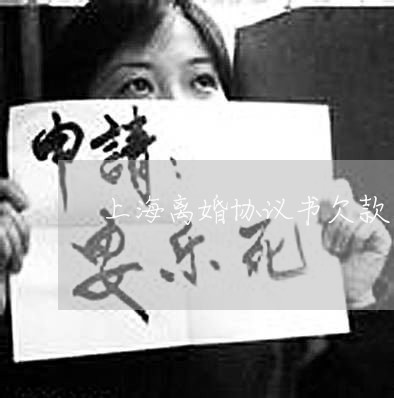 申請：
上海离婚协议书欠款
安乐死